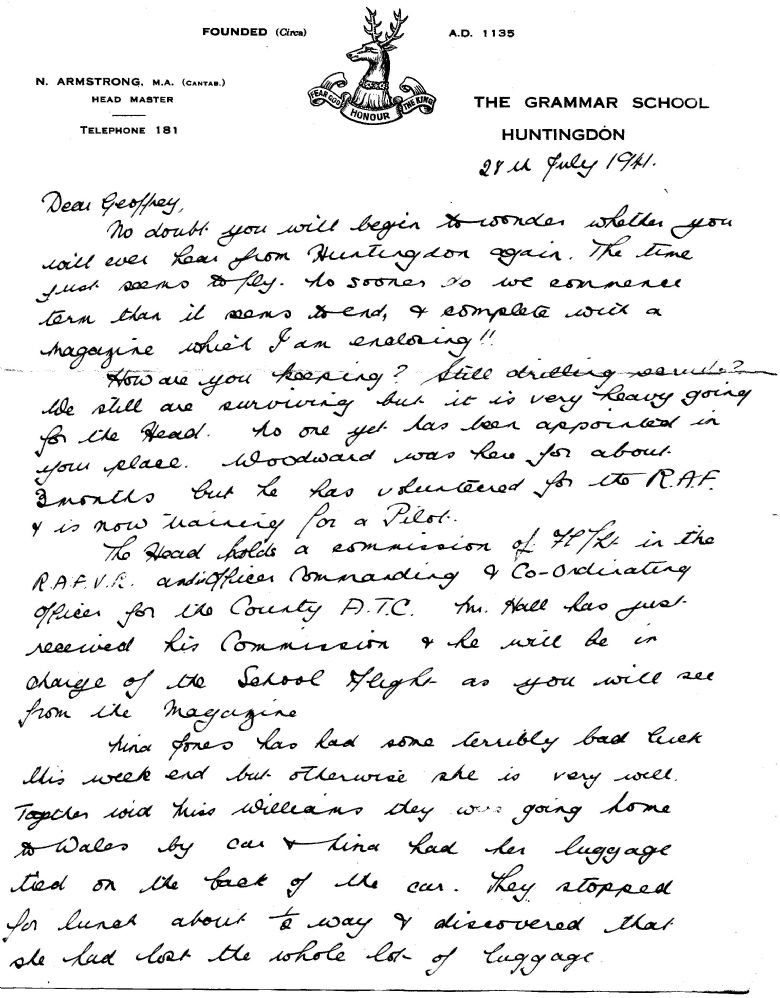 FOUNDED (Circa) A.D. 1135
N. ARMSTRONG, M.A. (CANTAB.)
HEAD MASTER
TELEPHONE 181
FEAR GOD HONOUR THE KING
THE GRAMMAR SCHOOL
HUNTINGDON
28th July 1941.
Dear Geoffrey,
No doubt you will begin to wonder whether you
will ever hear from Huntingdon again. The time
just seems to fly. No sooner do we commence
term than it seems to end, & complete with a
magazine which I am enclosing!!
How are you keeping? Still drilling recruits?
We still are surviving but it is very heavy going
for the Head. No one yet has been appointed in
your place. Woodward was here for about
3 months but he has volunteered for the R.A.F.
& is now training for a Pilot.
The Head holds a commission of Fl/Lt in the
R.A.F.V.R. and Officer Commanding & Co-Ordinating
Officer for the County A.T.C. Mr. Hall has just
received his Commission & he will be in
charge of the School Flight as you will see
from the Magazine
Nina Jones has had some terribly bad luck
this week end but otherwise she is very well.
Together with Miss Williams they were going home
to Wales by car & Nina had her luggage
tied on the back of the car. They stopped
for lunch about ½ way & discovered that
she had lost the whole lot of luggage.